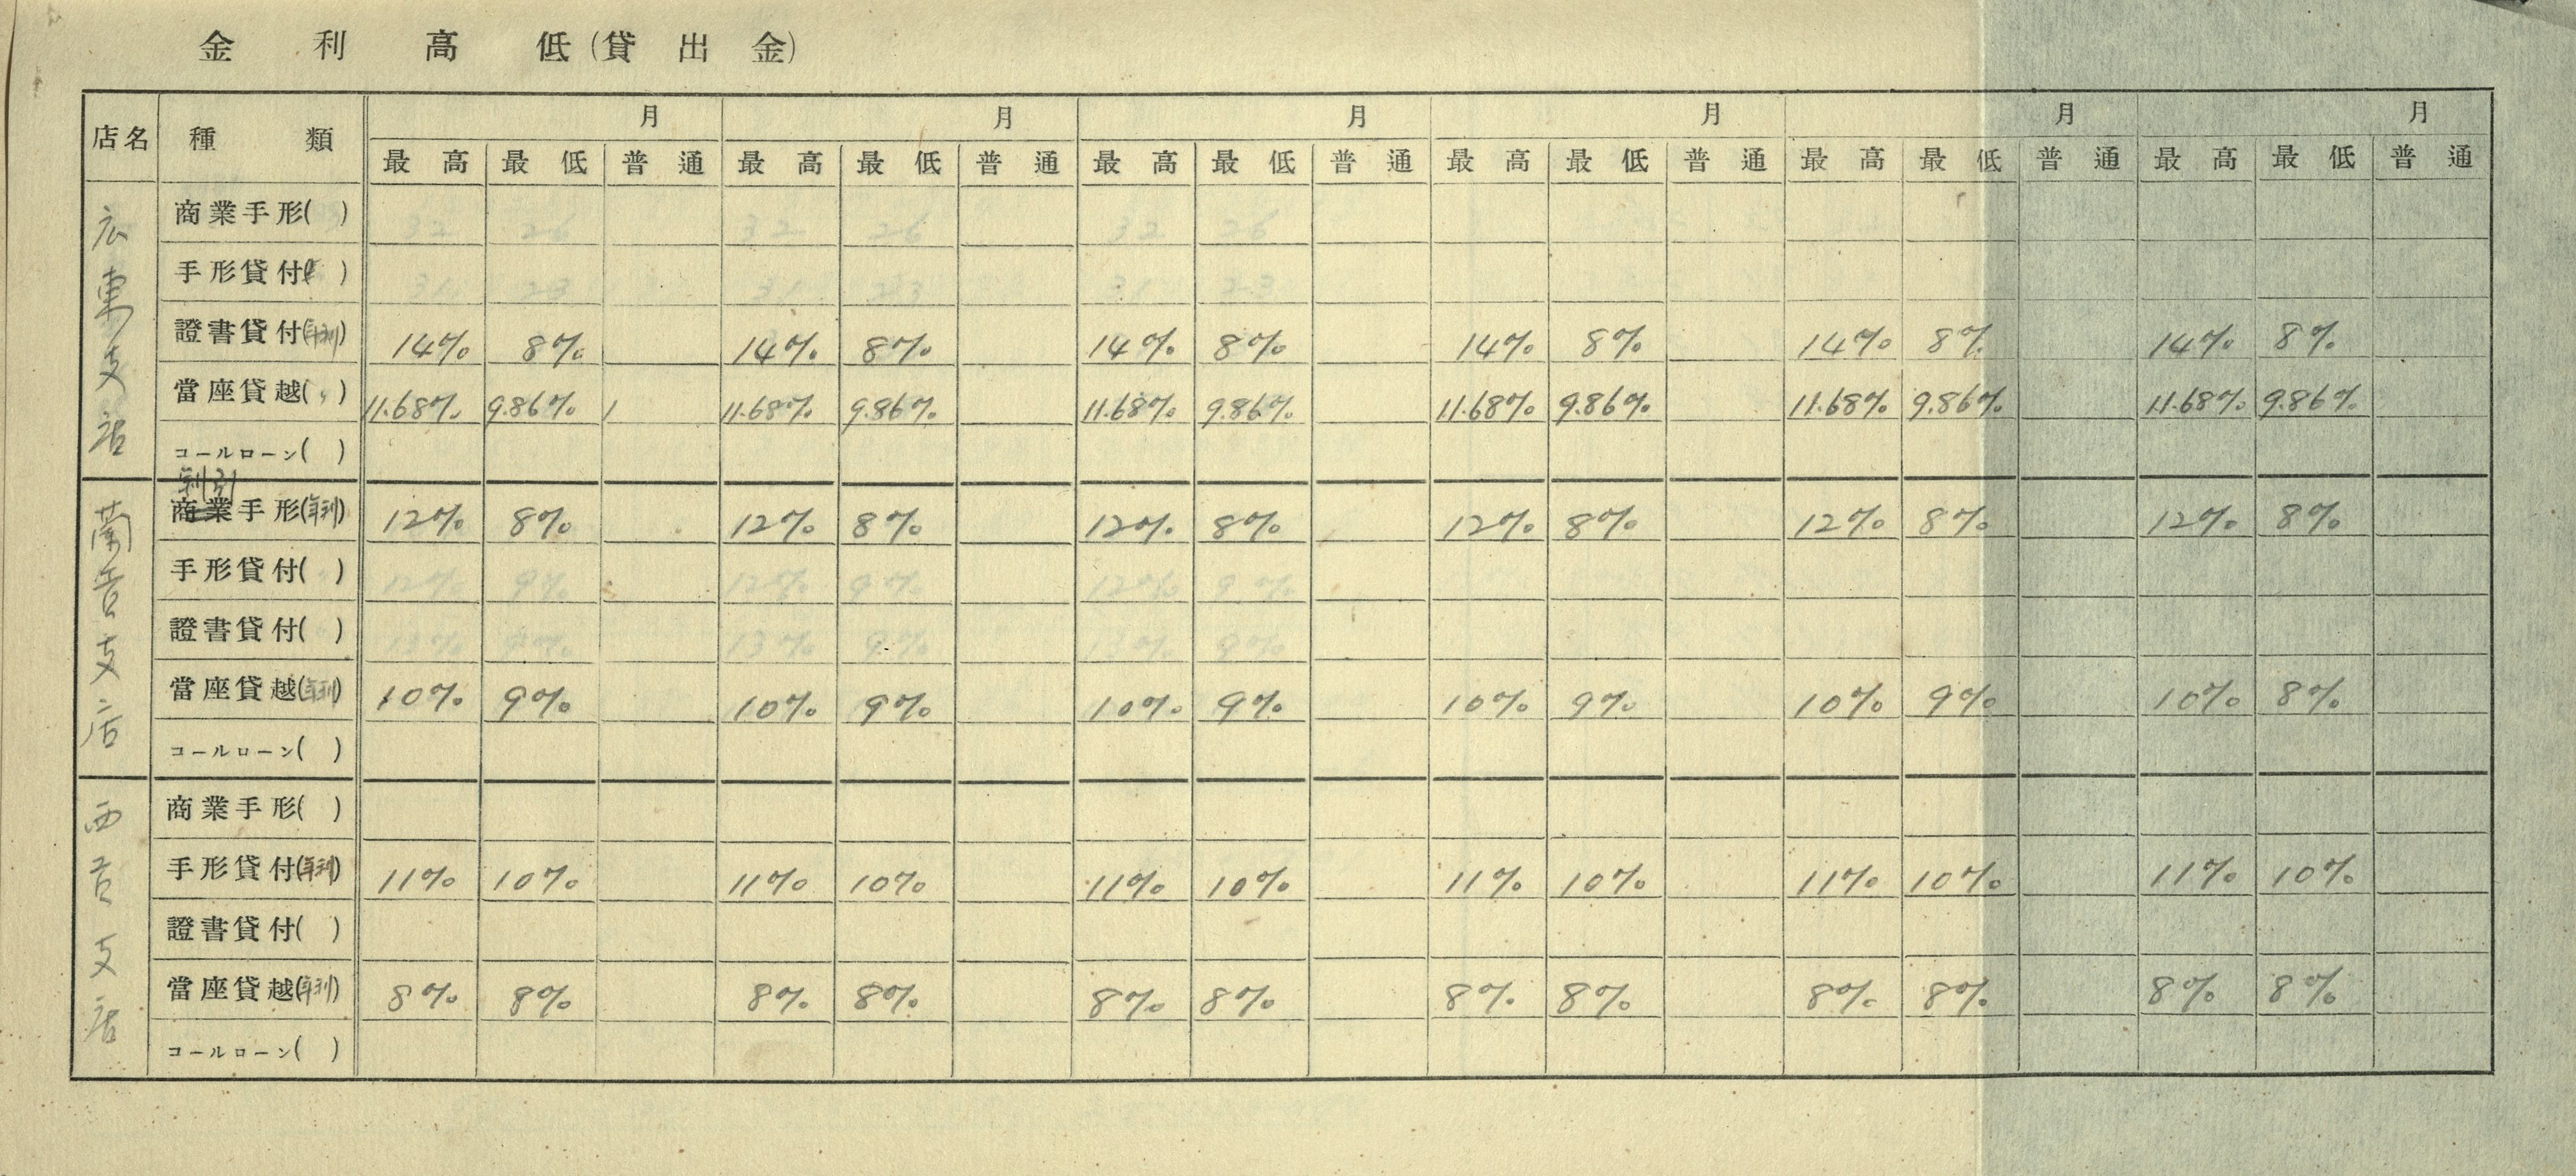 金利高低(貸出金)
店名 種類 月 月 月 月 月 月
最高 最低 普通 最高 最低 普通 最高 最低 普通 最高 最低 普通 最高 最低 普通 最高 最低 普通
広東支店
商業手形( )
手形貸付( )
證書貸付(年利) 14% 8% 14% 8% 14% 8% 14% 8% 14% 8% 14% 8%
當座貸越(〃) 11.68% 9.86% 11.68% 9.86% 11.68% 9.86% 11.68% 9.86% 11.68% 9.86% 11.68% 9.86%
コールローン( )
蘭貢支店
割引
商業手形(年利) 12% 8% 12% 8% 12% 8% 12% 8% 12% 8% 12% 8%
手形貸付( )
證書貸付( )
當座貸越(年利) 10% 9% 10% 9% 10% 9% 10% 9% 10% 9% 10% 8%
コールローン( )
西貢支店
商業手形( )
手形貸付(年利) 11% 10% 11% 10% 11% 10% 11% 10% 11% 10% 11% 10%
證書貸付( )
當座貸越(年利) 8% 8% 8% 8% 8% 8% 8% 8% 8% 8% 8% 8%
コールローン( )